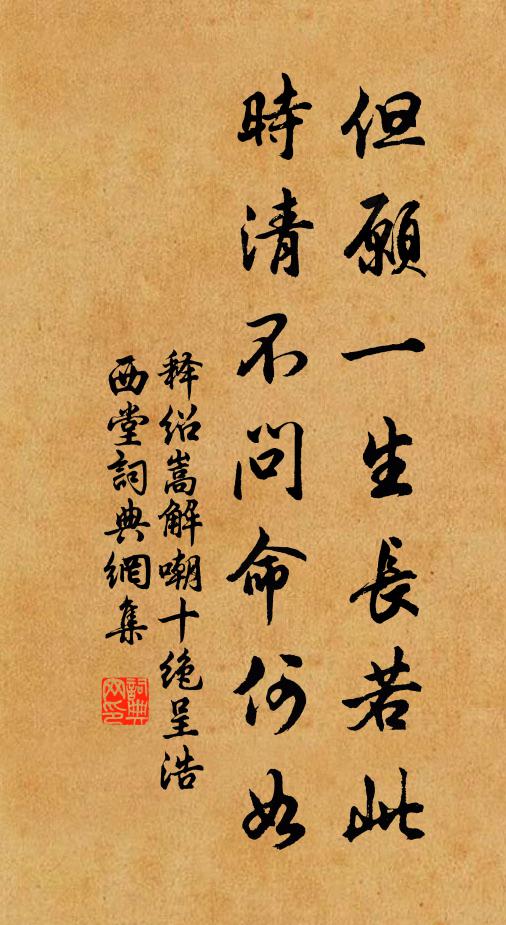 但願一生長若此
時清不問命何如
释绍嵩解嘲十绝呈浩
西堂詞典網集
詞典网印